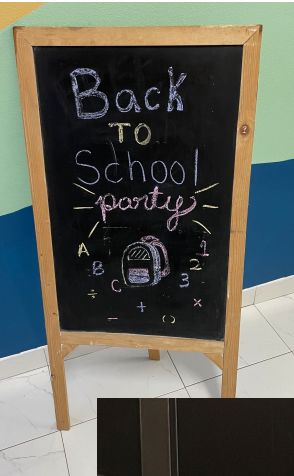 Back
TO
School
party
A 1
B 2
C 3
÷ ×
+
- ()